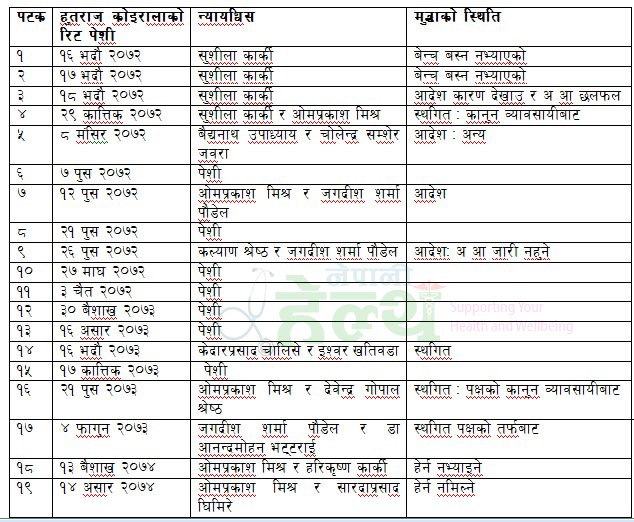 पटक हुतराज कोइरालाको न्यायधिस मुद्दाको स्थिति
रिट पेशी
१ १६ भदौ २०७२ सुशीला कार्की बेन्च बस्न नभ्याएको
२ १७ भदौ २०७२ सुशीला कार्की बेन्च बस्न नभ्याएको
३ १८ भदौ २०७२ सुशीला कार्की आदेश कारण देखाउ र अ आ छलफल
४ २९ कात्तिक २०७२ सुशीला कार्की र ओमप्रकाश मिश्र स्थगित : कानून व्यावसायीबाट
५ ८ मंसिर २०७२ बैद्यनाथ उपाध्याय र चोलेन्द्र सम्शेर आदेश : अन्य
जवरा
६ ७ पुस २०७२ पेशी
७ १२ पुस २०७२ ओमप्रकाश मिश्र र जगदीश शर्मा आदेश
पौडेल
८ २१ पुस २०७२ पेशी
९ २६ पुस २०७२ कल्याण श्रेष्ठ र जगदीश शर्मा पौडेल आदेश: अ आ जारी नहुने
१० २७ माघ २०७२ पेशी
११ ३ चैत २०७२ पेशी
१२ ३० बैशाख २०७३ पेशी
१३ १६ असार २०७३ पेशी
१४ १६ भदौ २०७३ केदारप्रसाद चालिसे र इश्वर खतिवडा स्थगित
१५ १७ कात्तिक २०७३ पेशी
१६ २१ पुस २०७३ ओमप्रकाश मिश्र र देवेन्द्र गोपाल स्थगित : पक्षको कानून व्यावसायीबाट
श्रेष्ठ
१७ ४ फागुन २०७३ जगदीश शर्मा पौडेल र डा स्थगित पक्षको तर्फबाट
आनन्दमोहन भट्टराई
१८ १३ बैशाख २०७४ ओमप्रकाश मिश्र र हरिकृष्ण कार्की हेर्न नभ्याइने
१९ १४ असार २०७४ ओमप्रकाश मिश्र र सारदाप्रसाद हेर्न नमिल्ने
घिमिरे
नेपाली
हेल्थ
Supporting Your
Health and Wellbeing